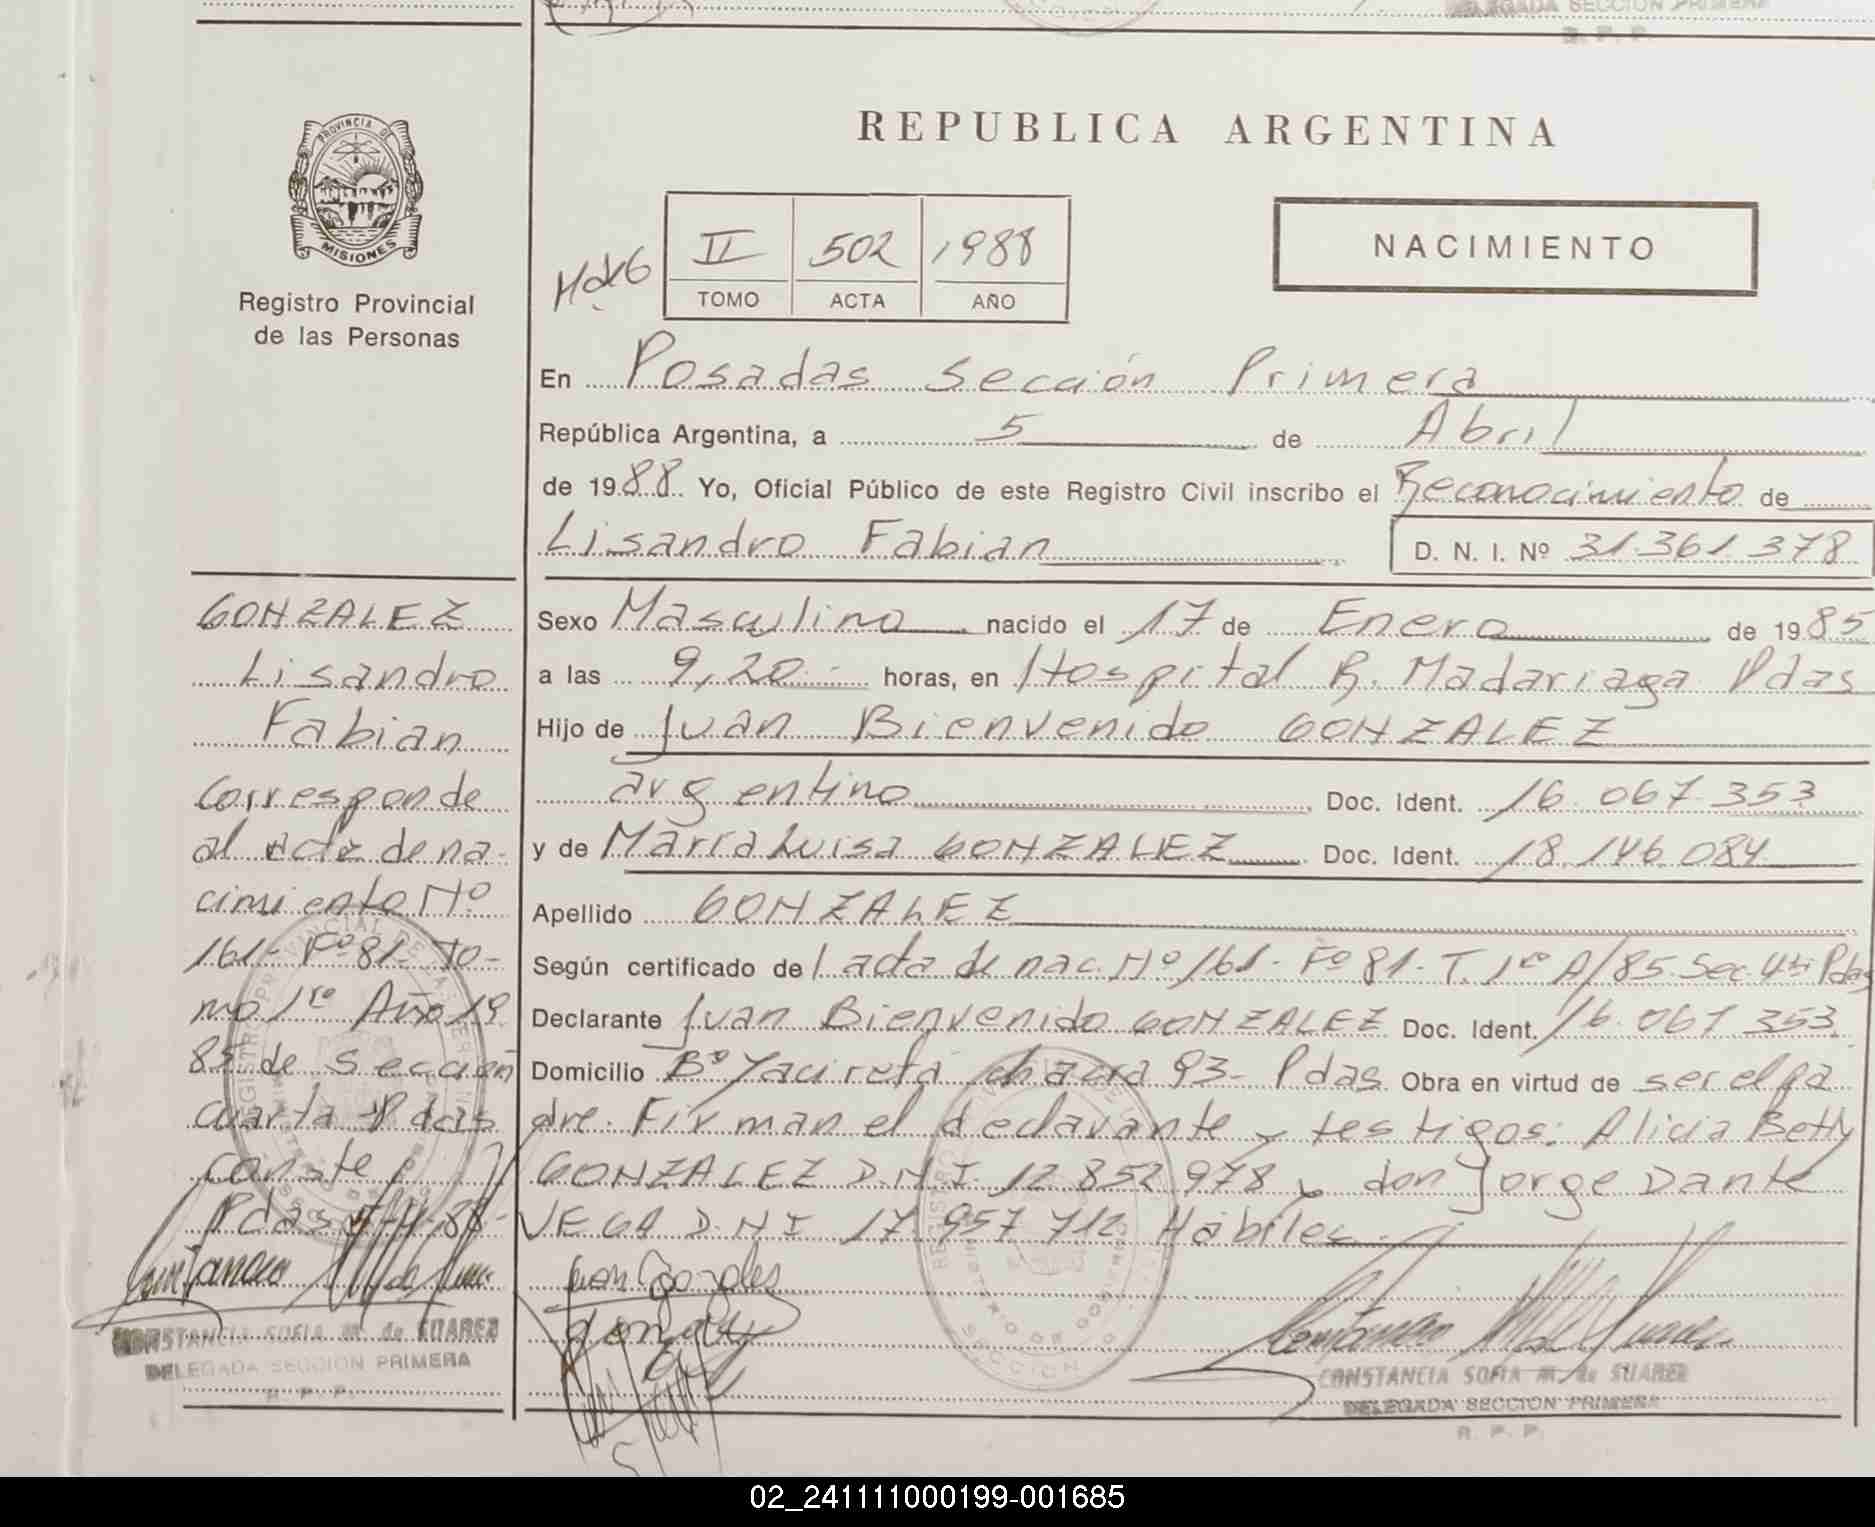 DELEGADA SECCION PRIMERA
R. P. P.
PROVINCIA DE
MISIONES
Registro Provincial
de las Personas
REPUBLICA ARGENTINA
II 502 1988
TOMO ACTA AÑO
NACIMIENTO
En Posadas Sección Primera
República Argentina, a 5 de Abril
de 1988 Yo, Oficial Público de este Registro Civil inscribo el Reconocimiento de
Lisandro Fabian D. N. I. Nº 31.361.378
Sexo Masculino nacido el 17 de Enero de 1985
a las 9,20 horas, en Hospital R. Madariaga Pdas
Hijo de Juan Bienvenido GONZALEZ
argentino Doc. Ident. 16.067.353
y de María Luisa GONZALEZ Doc. Ident. 18.146.084
Apellido GONZALEZ
Según certificado de l acta de nac. Nº 161- Fº 81- T. 1ro A/85 Sec. 4ta Pdas
Declarante Juan Bienvenido GONZALEZ Doc. Ident. 16.067.353
Domicilio Bº Yacireta chacra 93- Pdas Obra en virtud de ser el pa
dre. Firman el declarante y testigos: Alicia Betty
GONZALEZ D.N.I. 12.852.978 y don Jorge Dante
VEGA D.N.I 17.957.712 Hábiles.
Juan Gozales
CONSTANCIA SOFIA M. de SUAREZ
DELEGADA SECCION PRIMERA
R. P. P.
GONZALEZ
Lisandro
Fabian
Corresponde
al acta de na-
cimiento Nº
161- Fº 81- To-
mo 1ro Año 19
85 de sección
cuarta Pdas
conste
Pdas 5-4-88-
CONSTANCIA SOFIA M. de SUAREZ
DELEGADA SECCION PRIMERA
R. P. P.
02_241111000199-001685